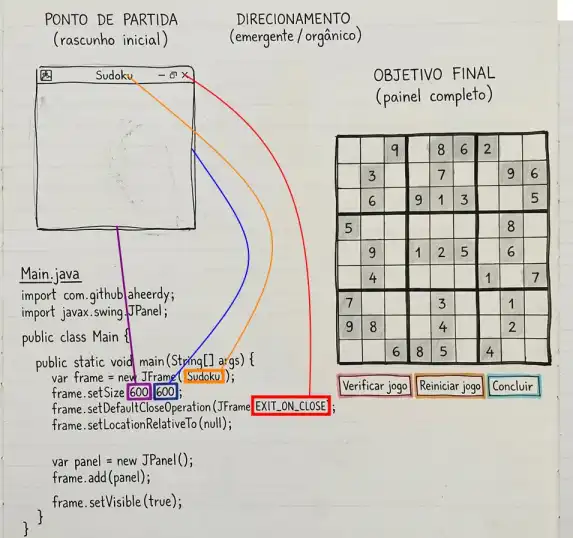 PONTO DE PARTIDA
(rascunho inicial)
DIRECIONAMENTO
(emergente / orgânico)
Sudoku
OBJETIVO FINAL
(painel completo)
9 8 6 2
3 7 9 6
6 9 1 3 5
5 8
9 1 2 5 6
4 1 7
7 3 1
9 8 4 2
6 8 5 4
Verificar jogo Reiniciar jogo Concluir
Main.java
import com.github aheerdy;
import javax.swing.JPanel;
public class Main {
public static void main(String[] args) {
var frame = new JFrame( Sudoku );
frame.setSize 600 600 ;
frame.setDefaultCloseOperation (JFrame EXIT_ON_CLOSE ;
frame.setLocationRelativeTo (null);
var panel = new JPanel();
frame.add(panel);
frame.setVisible (true);
}
}